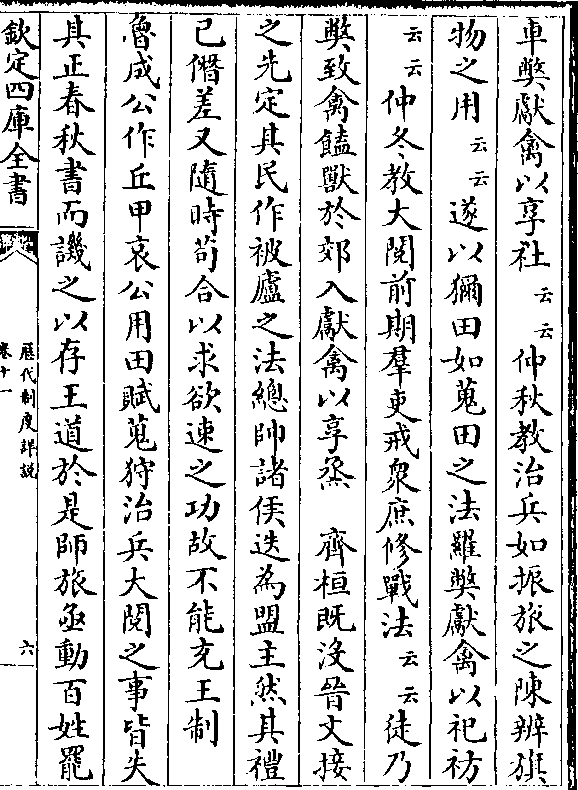 車獘獻禽以享社云云仲秋教治兵如振旅之陳辨旗
物之用云云遂以獮田如蒐田之法羅獘獻禽以祀祊
云云仲冬教大閱前期羣吏戒衆庶修戰法云云徒乃
獘致禽饁獸於郊入獻禽以享烝　齊桓既沒晉文接
之先定其民作被廬之法總帥諸侯迭為盟主然其禮
已僭差又隨時苟合以求欲速之功故不能充王制
魯成公作丘甲哀公用田賦蒐狩治兵大閱之事皆失
其正春秋書而譏之以存王道於是師旅亟動百姓罷
欽定四庫全書
歴代制度詳説
卷十一
六